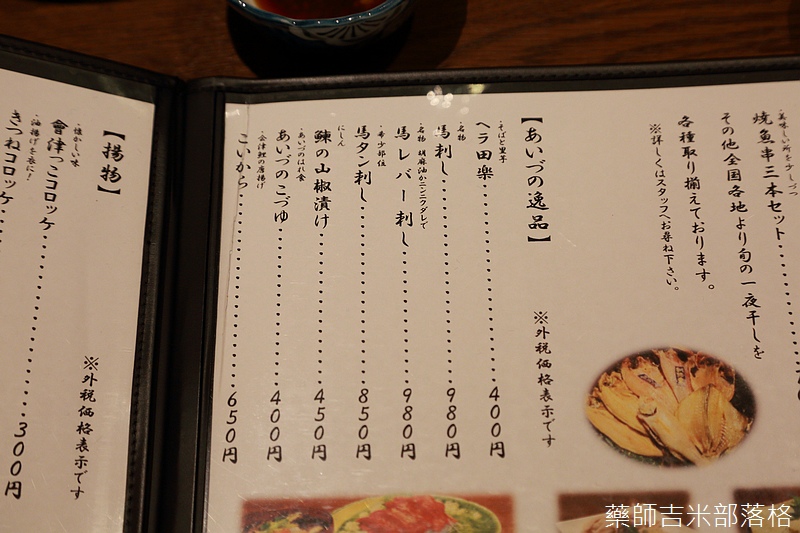 ・美味しい所を少しづつ
焼魚串三本セット
その他全国各地より旬の一夜干しを
各種取り揃えております。
※詳しくはスタッフへお尋ね下さい。
【あいづの逸品】
※外税価格表示です
・そばと里芋
ヘラ田楽 400円
・名物
馬刺し 980円
・名物 胡麻油かニンニクダレで
馬レバー刺し 980円
・希少部位
馬タン刺し 850円
にしん
鰊の山椒漬け 450円
・あいづのはれ食
あいづのこづゆ 400円
・会津鯉の唐揚げ
こいから 650円
【揚物】
※外税価格表示です
・懐かしい味
會津っこコロッケ 300円
・油揚げを衣に!
きつねコロッケ
藥師吉米部落格